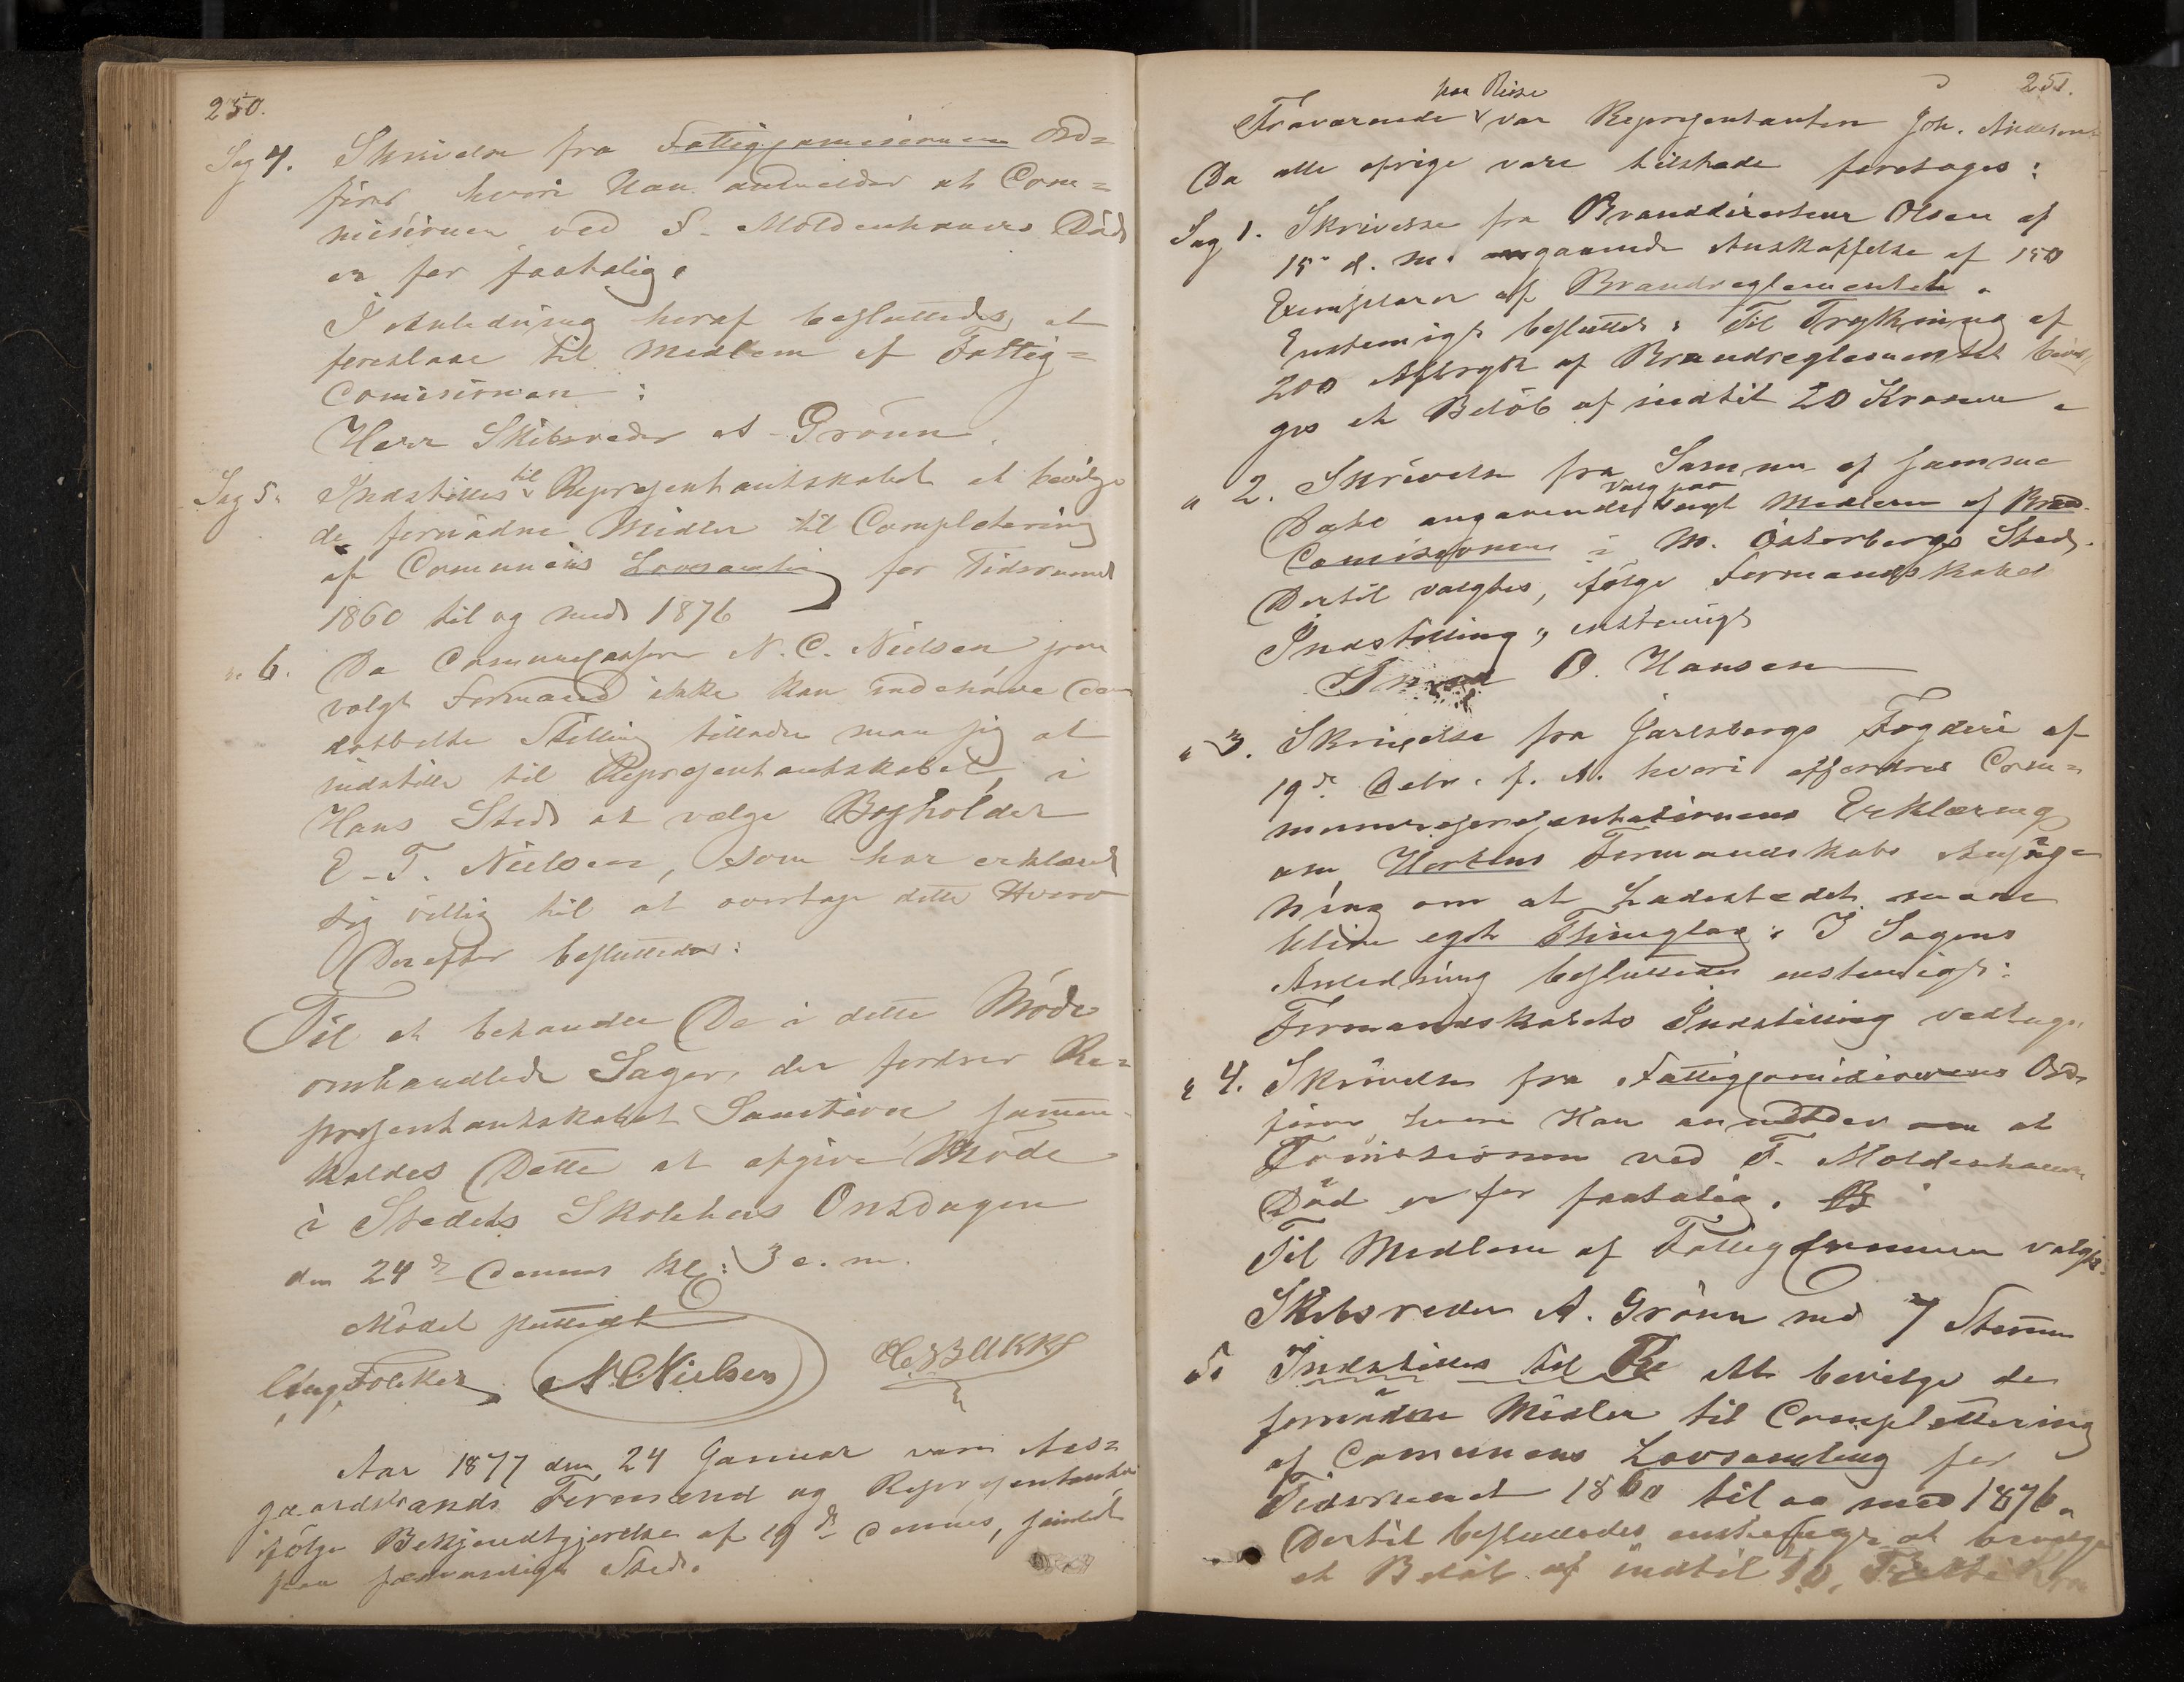 250.
Sag 4. Skrivelse fra Fattigcomisionens Ord=
förer hvori Han anmelder at Com=
misionen ved F. Moldenhauers Död
er for faatalig.
I Anledning heraf besluttedes at
foreslaae til Medlem af Fattig=
Comisionen:
Herr Skibsreder A. Grönn.
Sag 5. Indstilles til Repræsentantskabet at bevilge
de fornödne Midler til Completering
af Comunens Lovsamling for Tidsrummet
1860 til og med 1876
" 6. Da Comunecasserer N. C. Nielsen som
valgt Formand ikke kan indehave den
dobbelte Stilling tillader man sig at
indstille til Repræsentantskabet i
Hans Sted at vælge Bogholder
E. T. Nielsen, som har erklæret
sig villig til at overtage dette Hverv
Derefter besluttedes:
Til at behandle De i dette Möde
omhandlede Sager, der fordrer Re=
præsentantskabet Sanction sammen=
kaldes Dette at afgive Möde
i Stedets Skolehus Onsdagen
den 24de dennes Kl: 3 e. m.
Mödet sluttedt
Aug. Foleker N. C. Nielsen
Aar 1877 den 24 Januar var Aas=
gaardstrands Formænd og Repræsentanter
ifölge Bekjendtgjörelse af 19de dennes, samlet
paa sædvanlige Sted.
251.
paa Reise
Fraværende var Repræsentanten Joh. Andersen
Da alle övrige vare tilstæde foretoges:
Sag 1. Skrivelse fra Branddirecteur Olsen af
15de d. M. angaaende Anskaffelse af 150
Exemplarer af Brandreglementet.
Enstemigt besluttet: Til Trykning af
200 Aftryk af Brandreglementet bevil=
ges et Belöb af indtil 20 Kroner.
" 2. Skrivelse fra Samme af samme
Valg paa
Dato angaaende nyt Medlem af Brand
Comisionen i M. Österbergs Sted.
Dertil valgtes, ifölge Formandskabets
Indstilling, enstemigt
O. Hansen
" 3. Skrivelse fra Jarlsbergs Fogderi af
19de Debr. f. A. hvori affordres Com=
munerepræsentationens Erklæring
om Hortens Formandskabs Ansög=
ning om at Ladestedet maa
blive eget Thinglag. I Sagens
Anledning besluttedes enstemigt:
Formandskabets Indstilling vedtages
" 4. Skrivelse fra Fattigcomisionens Ord=
förer hvori Han anmelder at
Comisionen ved F. Moldenhauers
Död er for faatalig.
Til Medlem af Fattigcommisionen valgtes
Skibsreder A. Grönn med 7 Stemmer
5. Indstilles til Re At bevilge de
fornödne Midler til Complettering
af Comunens Lovsamling for
Tidsrummet 1860 til og med 1876.
Dertil besluttedes enstemigt at bevilge
et Belöb af indtil